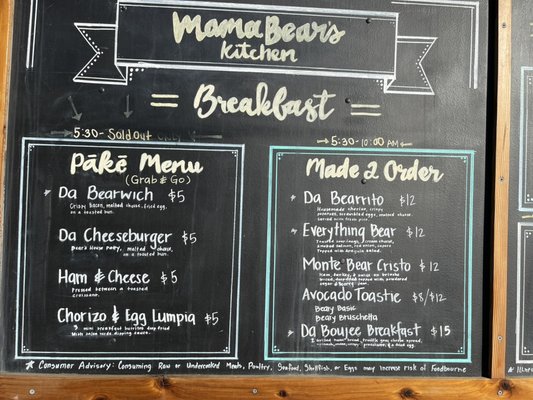 Mama Bear's
Kitchen
Breakfast
5:30- Sold Out
Pākē Menu
(Grab & Go)
Da Bearwich $5
Crispy Bacon, melted cheese, fried egg,
on a toasted bun.
Da Cheeseburger $5
Bear's House Patty, melted cheese,
on a toasted bun.
Ham & Cheese $5
Pressed between a toasted
croissant.
Chorizo & Egg Lumpia $5
mini breakfast burritos deep fried
5:30-10:00 AM
Made 2 Order
Da Bearrito $12
Housemade chorizo, crispy
scrambled eggs, melted cheese.
Everything Bear $12
Toasted everything cream cheese,
smoked salmon, red onion, capers
Topped with Arugula salad.
Monte Bear Cristo $12
Ham, turkey, & swiss on brioche
bread, deep fried topped with powdered
sugar &
Avocado Toastie $8/$12
Beary Basic
Beary Bruschetta
Da Boujee Breakfast $15
* Consumer Advisory: Consuming Raw or Undercooked Meats, Poultry, Seafood, Shellfish, or Eggs may increase risk of Foodbourne